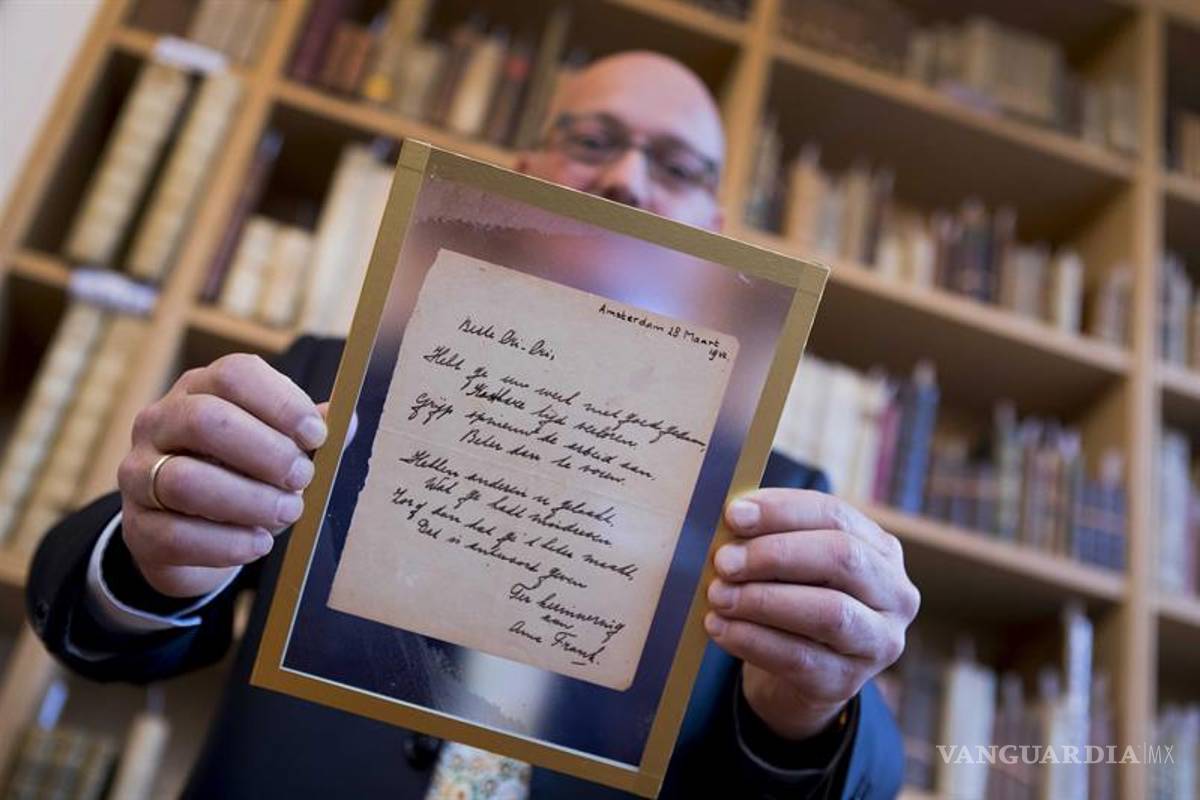 Amsterdam 28 Maart
1942.
Beste Cri-Cri,
Hebt ge uw werk niet goed gedaan,
Kostbare tijd verloren.
Grijp opnieuw de arbeid aan.
Beter dan te voren.
Hebben anderen u gelaakt,
Wat ge hebt misdreven.
Zorg dan dat ge 't beter maakt,
Dat is antwoord geven
Ter herinnering
aan
Anne Frank.
VANGUARDIA|MX